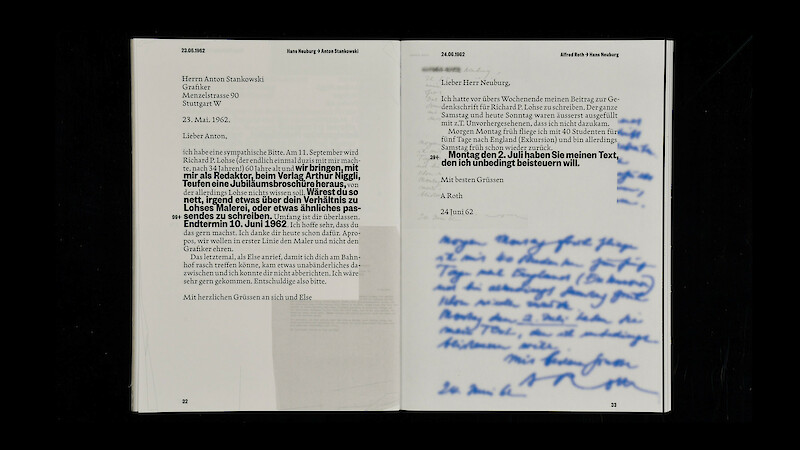 23.05.1962
Hans Neuburg → Anton Stankowski
Herrn Anton Stankowski
Grafiker
Menzelstrasse 90
Stuttgart W
23. Mai. 1962.
Lieber Anton,
ich habe eine sympathische Bitte. Am 11. September wird
Richard P. Lohse (der endlich einmal duzis mit mir mach-
te, nach 34 Jahren!) 60 Jahre alt und wir bringen, mit
mir als Redaktor, beim Verlag Arthur Niggli,
Teufen eine Jubiläumsbroschüre heraus, von
der allerdings Lohse nichts wissen soll. Wärest du so
nett, irgend etwas über dein Verhältnis zu
Lohses Malerei, oder etwas ähnliches pas-
sendes zu schreiben. Umfang ist dir überlassen.
Endtermin 10. Juni 1962. Ich hoffe sehr, dass du
das gern machst. Ich danke dir heute schon dafür. Apro-
pos, wir wollen in erster Linie den Maler und nicht den
Grafiker ehren.
Das letztemal, als Else anrief, damit ich dich am Bahn-
hof rasch treffen könne, kam etwas unabänderliches da-
zwischen und ich konnte dir nicht abberichten. Ich wäre
sehr gern gekommen. Entschuldige also bitte.
Mit herzlichen Grüssen an sich und Else
22
24.06.1962
Alfred Roth → Hans Neuburg
Lieber Herr Neuburg,
Ich hatte vor übers Wochenende meinen Beitrag zur Ge-
denkschrift für Richard P. Lohse zu schreiben. Der ganze
Samstag und heute Sonntag waren äusserst ausgefüllt
mit z.T. Unvorhergesehenen, dass ich nicht dazukam.
Morgen Montag früh fliege ich mit 40 Studenten für
fünf Tage nach England (Exkursion) und bin allerdings
Samstag früh schon wieder zurück.
Montag den 2. Juli haben Sie meinen Text,
den ich unbedingt beisteuern will.
Mit besten Grüssen
A Roth
24 Juni 62
Morgen Montag früh fliege
ich mit 40 Studenten für fünf
Tage nach England (Exkursion)
und bin allerdings Samstag früh
schon wieder zurück.
Montag den 2. Juli haben Sie
meinen Text, den ich unbedingt
beisteuern will.
Mit besten Grüssen
24. Juni 62 A Roth
33